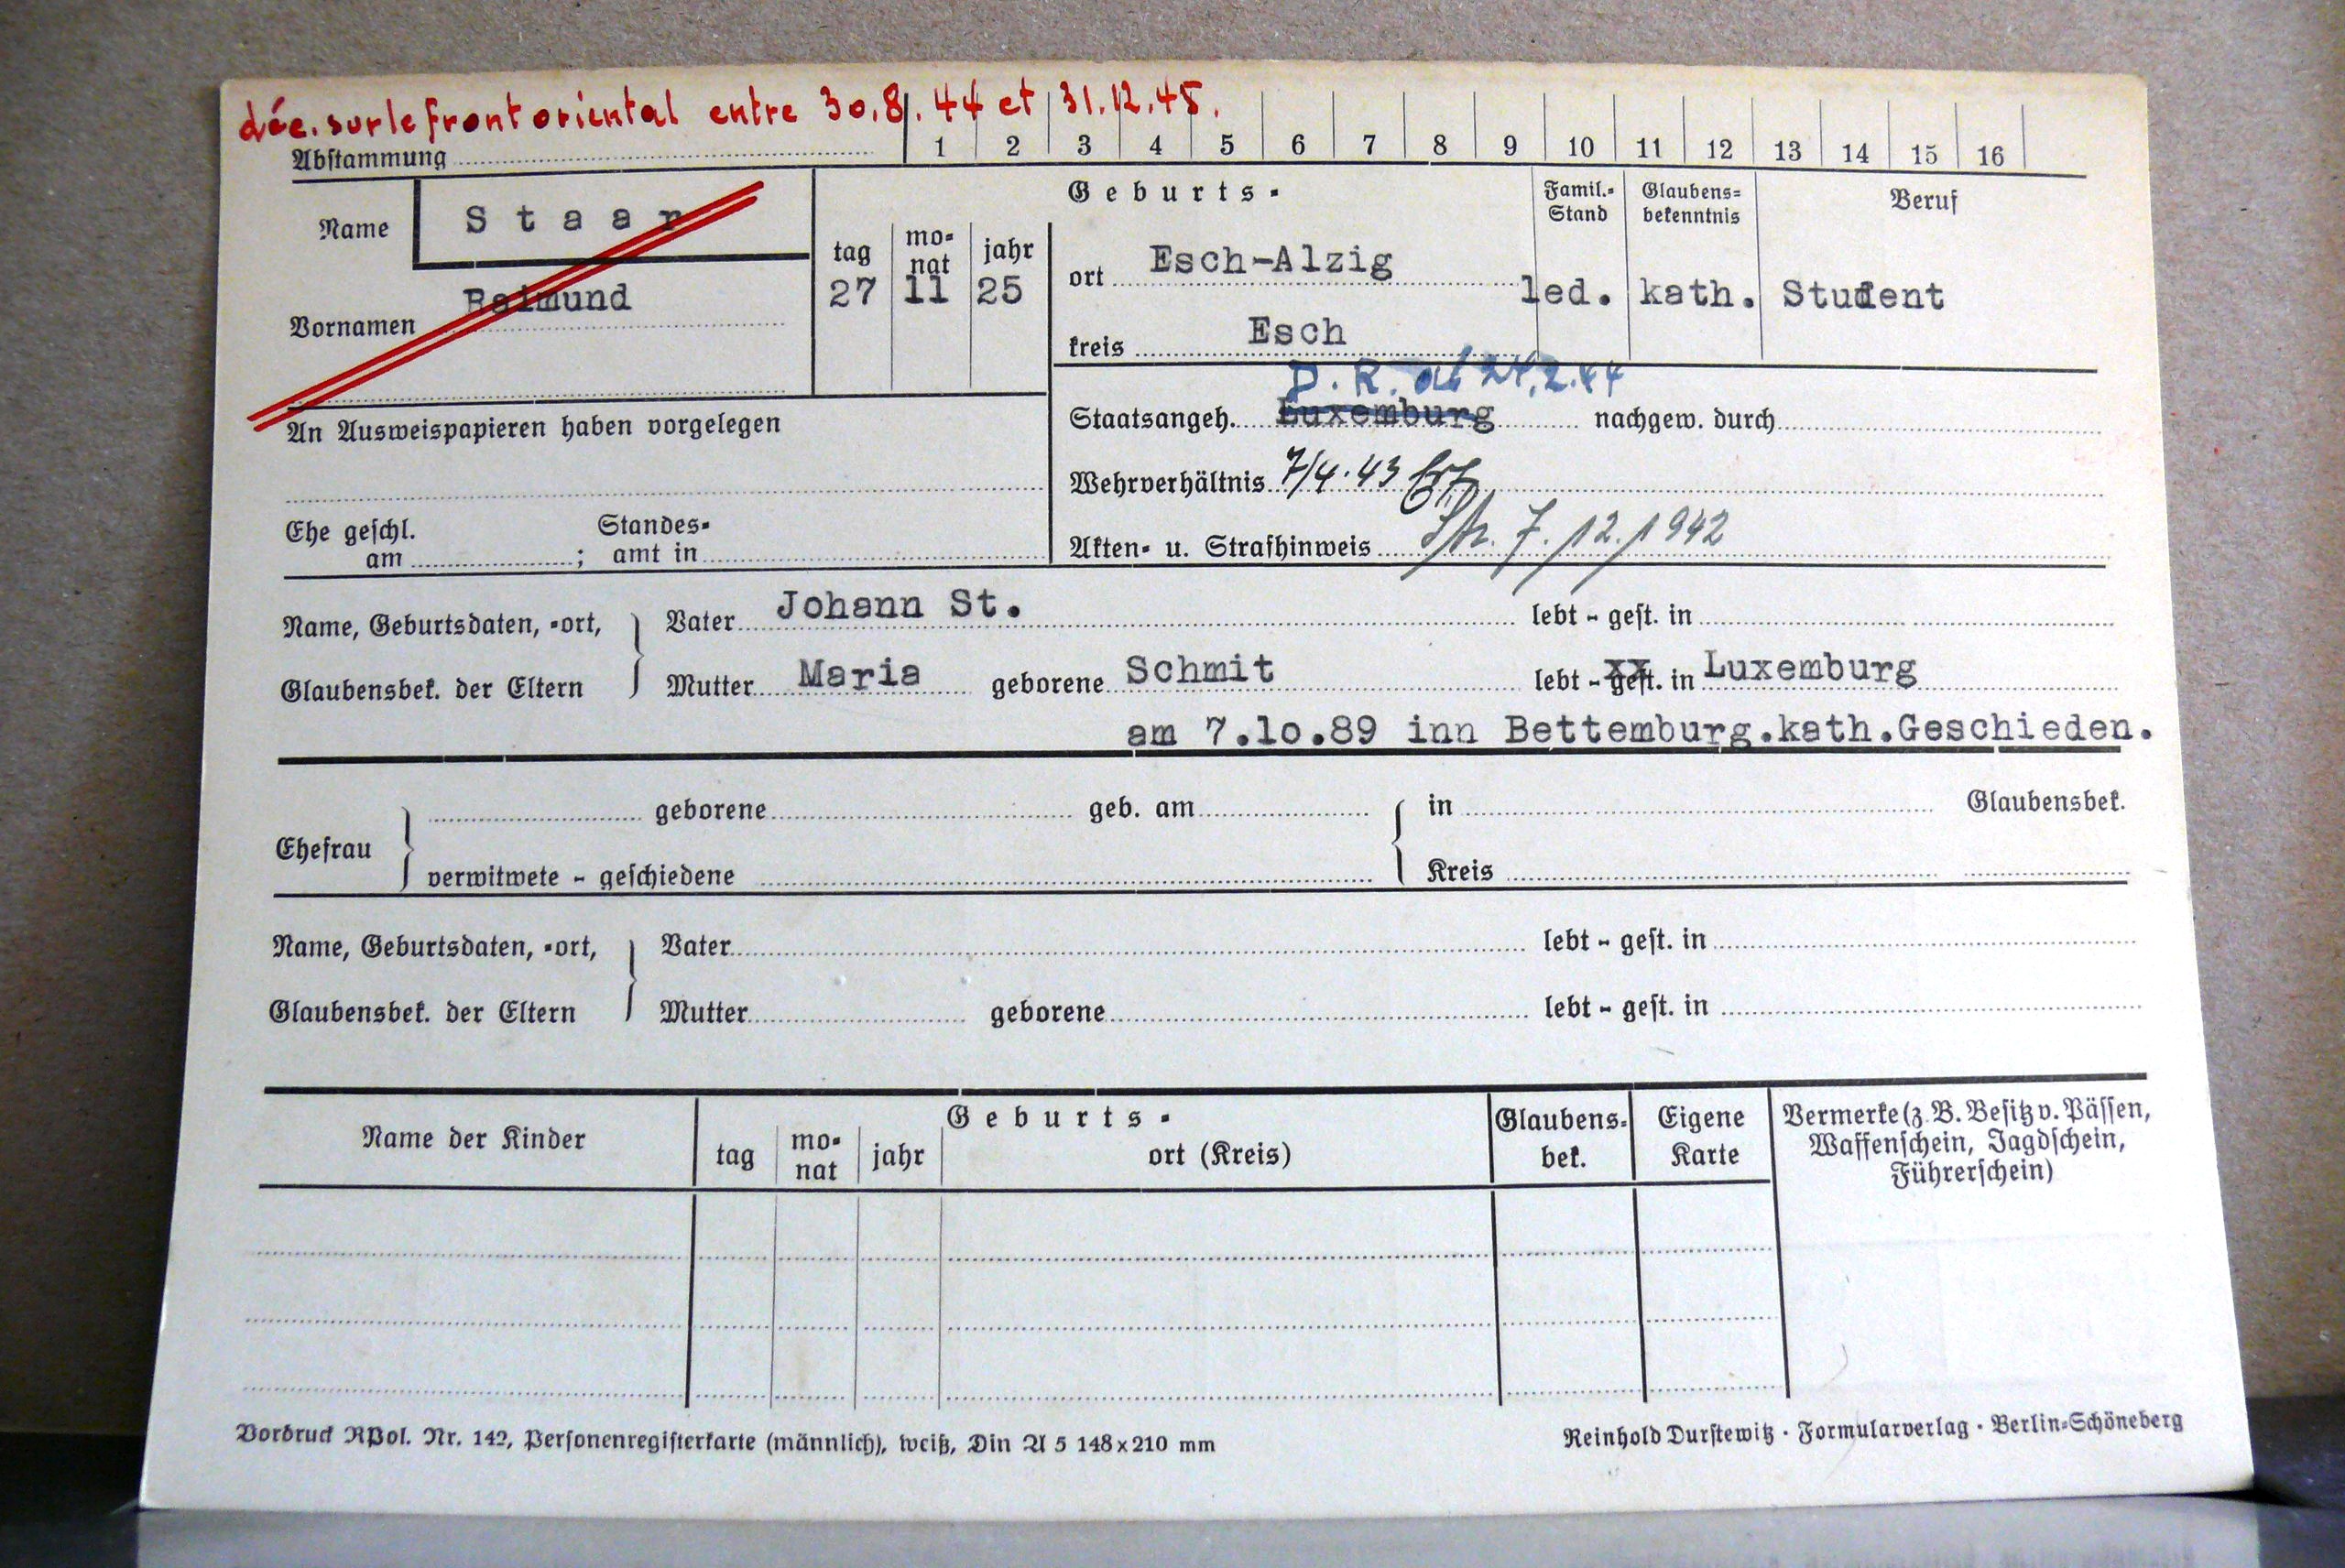 déc. sur le front oriental entre 30.8.44 et 31.12.45.
Abstammung 1 2 3 4 5 6 7 8 9 10 11 12 13 14 15 16
Name Staar
Vornamen Raimund
Geburts-
tag monat jahr
27 11 25
ort Esch-Alzig
kreis Esch
Famil.-Stand
led.
Glaubens-bekenntnis
kath.
Beruf
Student
D. R. ab 24.2.44
Staatsangeh. Luxemburg nachgew. durch
An Ausweispapieren haben vorgelegen
Wehrverhältnis 7/4.43
Akten- u. Strafhinweis 7.12.1942
Ehe geschl. am ; Standes-amt in
Name, Geburtsdaten, -ort, Vater Johann St. lebt - gest. in
Glaubensbek. der Eltern Mutter Maria geborene Schmit lebt - gest. in Luxemburg
am 7.10.89 inn Bettemburg.kath.Geschieden.
geborene geb. am in Glaubensbek.
Ehefrau
verwitwete - geschiedene Kreis
Name, Geburtsdaten, -ort, Vater lebt - gest. in
Glaubensbek. der Eltern Mutter geborene lebt - gest. in
Name der Kinder
Geburts-
tag monat jahr ort (Kreis)
Glaubens-bek.
Eigene Karte
Vermerke (z. B. Besitz v. Pässen,
Waffenschein, Jagdschein,
Führerschein)
Vordruck RPol. Nr. 142, Personenregisterkarte (männlich), weiß, Din A 5 148x210 mm
Reinhold Durstewitz · Formularverlag · Berlin-Schöneberg